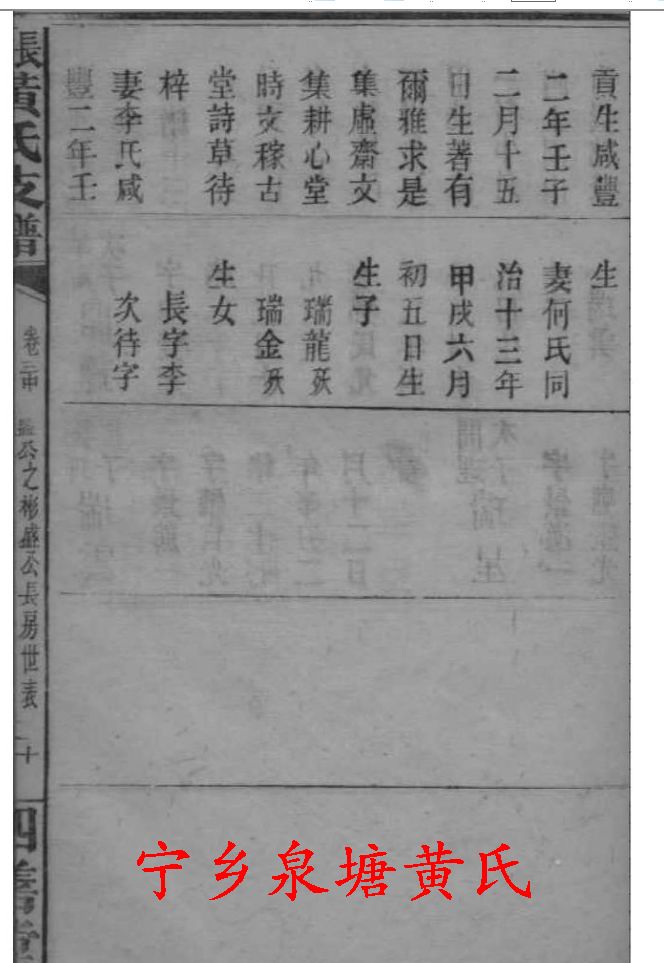 貢生咸豐
二年壬子
二月十五
日生著有
爾雅求是
集虛齋文
集耕心堂
時文稼古
堂詩草待
梓
妻李氏咸
豐二年壬
生
妻何氏同
治十三年
甲戌六月
初五日生
生子
瑞龍殀
瑞金殀
生女
長字李
次待字
張黃氏支譜
卷
公之彬盛公長房世表
十
四善堂
宁乡泉塘黄氏